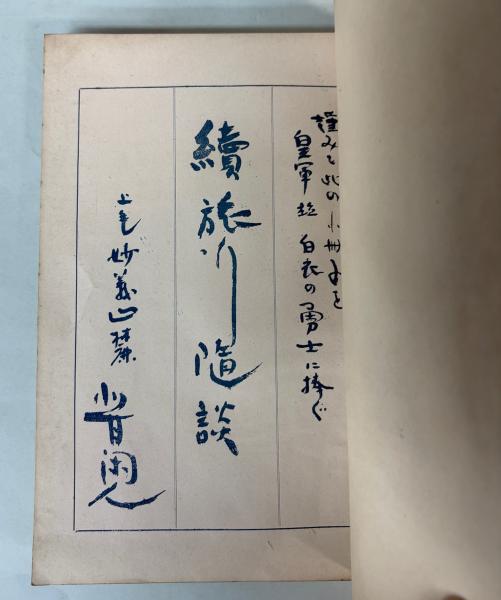 謹みて此の小冊子を
皇軍並白衣の勇士に捧ぐ
續旅行隨談
上毛妙義山麓